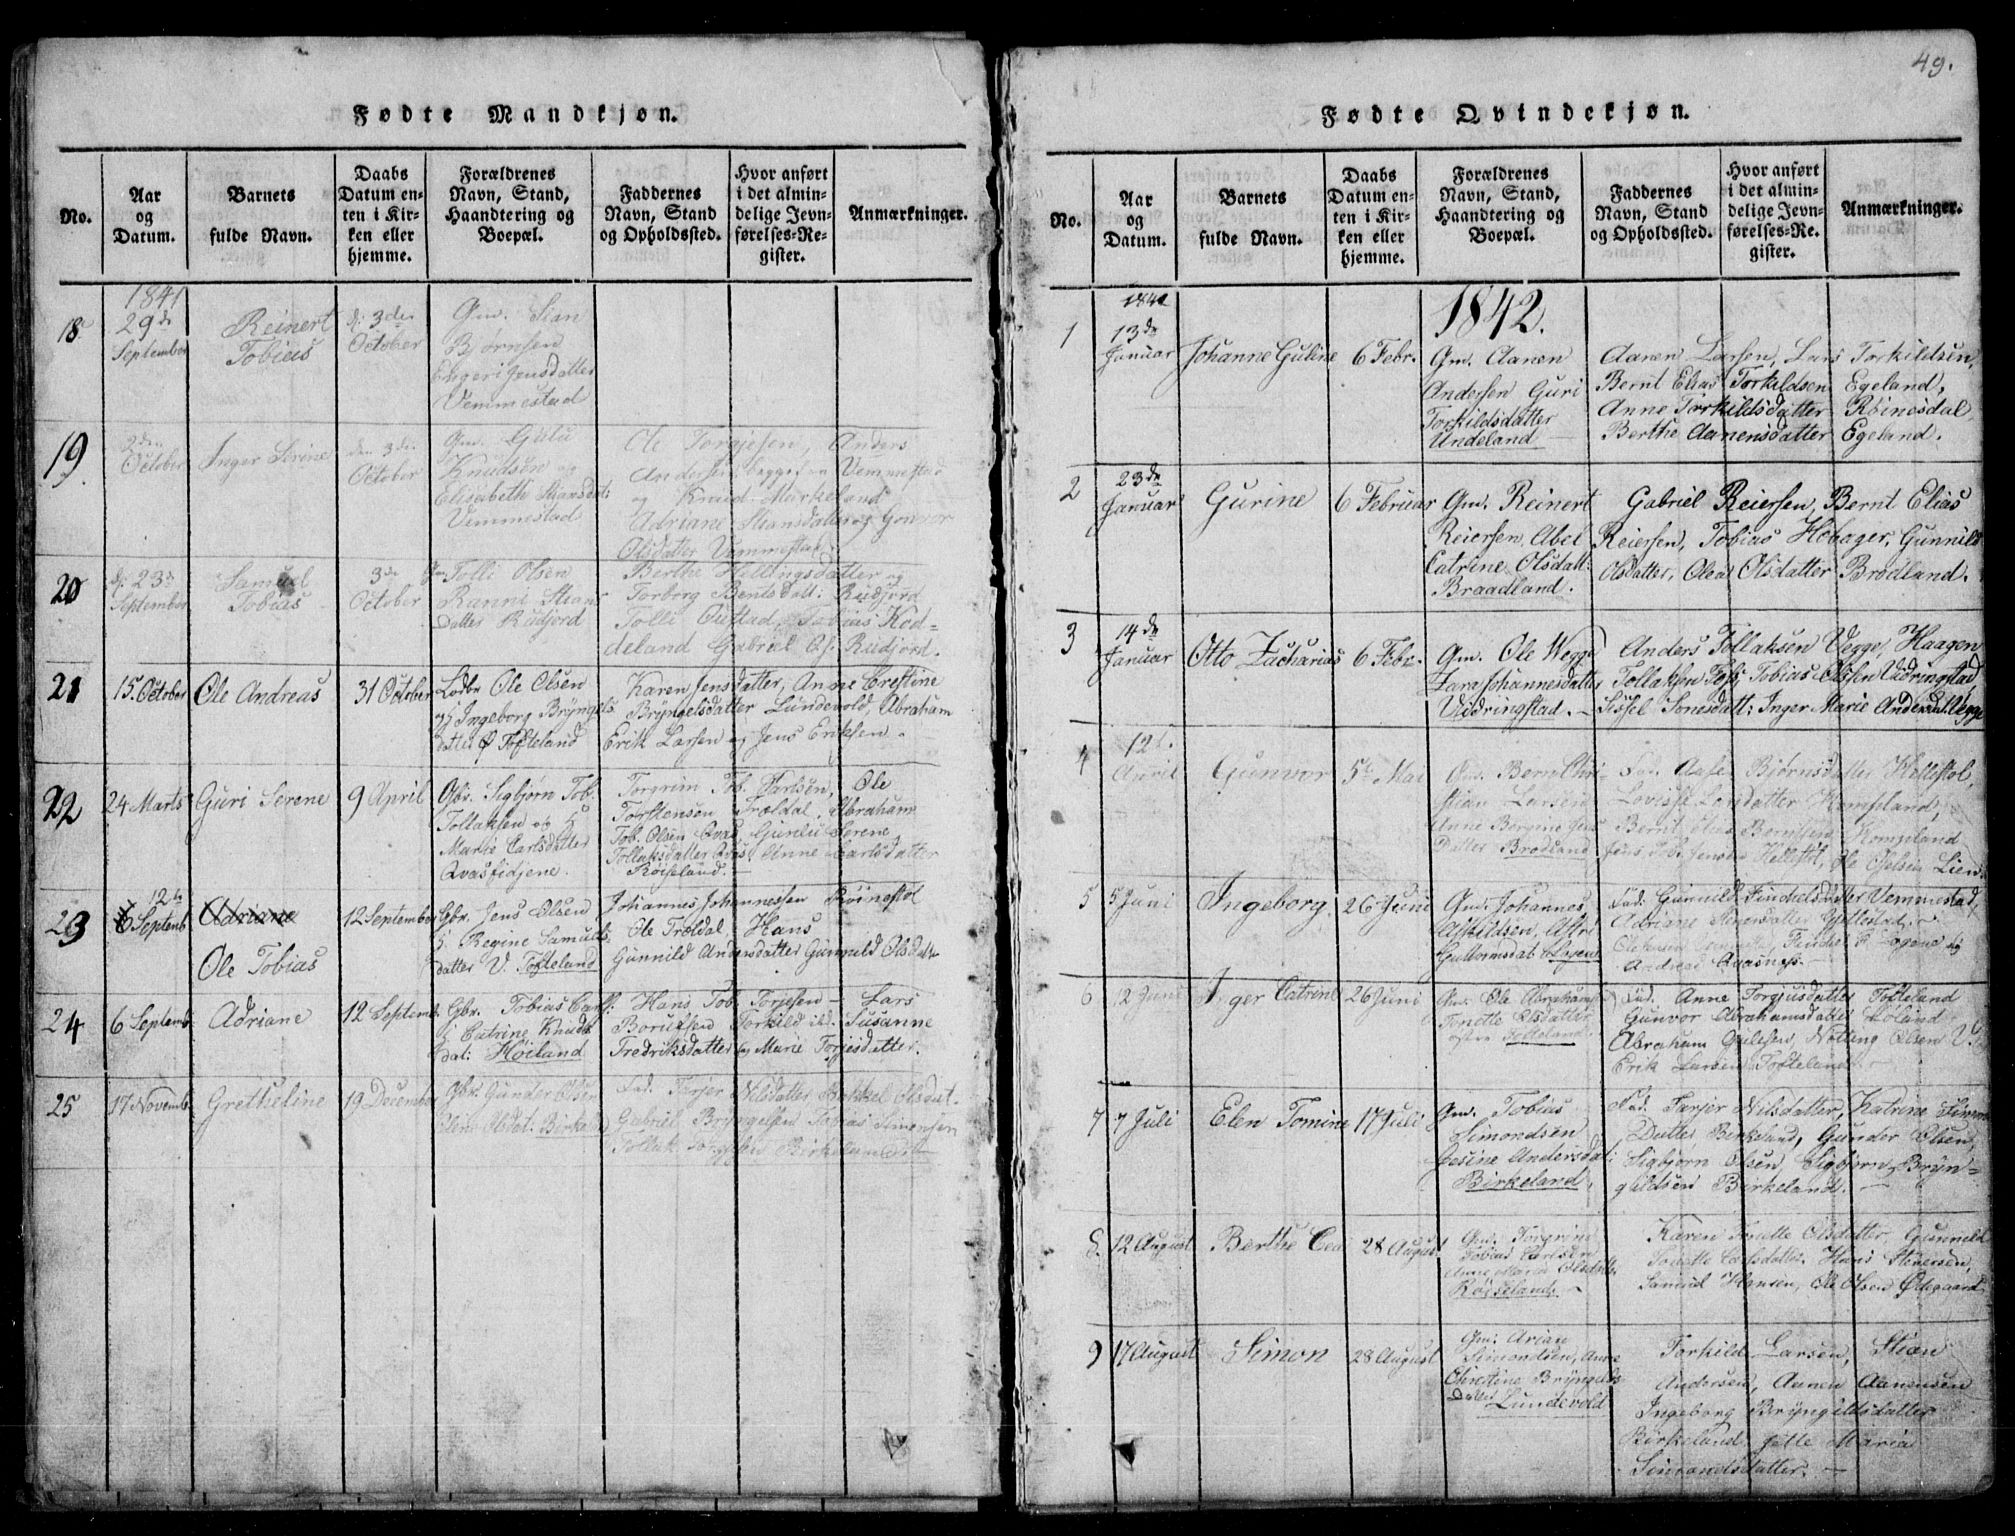 49.
Fødte Mandkjøn.
No.
Aar
og
Datum.
Barnets
fulde Navn.
Daabs
Datum en-
ten i Kir-
ken eller
hjemme.
Forældrenes
Navn, Stand,
Haandtering og
Boepæl.
Faddernes
Navn, Stand
og Opholdssted.
Hvor anført
i det almin-
delige Jevn-
førelses-Re-
gister.
Anmærkninger.
18
1841
29de
September
Reinert
Tobias
3die
October
Gm. Sian
Bjørnsen
Engeri Jensdatter
Vemmestad
19
2den
October
Inger Serine
den 3die
October
Gm. Gulu
Knudsen og
Elisabeth Stiansdat:
Vemmestad
Ole Torgjesen, Anders
Andersen begge Vemmestad
og Knud Markeland
Adriane Stiansdatter og Gonvor
Olsdatter Vemmestad
20
23de
September
Samuel
Tobias
3de
October
Gm Tolli Olsen
Ranni Stians
datter Rudjord
Berthe Hellingsdatter og
Torborg Bentsdatt: Rudjord
Tolli Oustad, Tobias Kod=
deland Gabriel Rudjord.
21
15. October
Ole Andreas
31 October
Ole Olsen
Ingeborg Bryngels
datter Tofteland
Karen Jensdatter, Anne Crestine
Bryngelsdatter Lundevold, Abraham
Erik Larsen og Jens Eriksen.
22
24 Marts
Guri Serene
9 April
Gbr. Sigbjørn Tob.
Tollaksen og
Marie Carlsdatter
Qvasfidjene.
Torgrim Tob. Karlsen, Ole
Torstensen Trældal, Abraham
Tob. Olsen Qvas, Gunlu Serene
Tollaksdatter Qvas, Anne Carlsdatter
Røiseland.
23
12te
6 Septemb
Adriane
Ole Tobias
12 September
Gbr. Jens Olsen
Regine Samuels
datter V. Tofteland
Johannes Johannessen Røinestol
Ole Træeldal, Hans
Gunnild Andersdatter Gunnuld Olsdatter
24
6 Septemb.
Adriane
12 Septemb.
Gbr. Tobias Carls:
Catrine Knuds
dat: Høiland
Hans Tob. Torjesen Lars
Borufsen Torkild ibd. Susanne
Fredriksdatter og Marie Torjesdatter.
25
17 Novemb.
Gretheline
19 December
Gbr. Gunder Olsen
Elene Olsdat: Birkeland
Fad. Tarjer Nilsdatter Bakkel Olsdat.
Gabriel Bryngelsen Tobias Simonsen
Tollak Torgjsen Birkeland
Fødte Qvindekjøn.
No.
Aar
og
Datum.
Barnets
fulde Navn.
Daabs
Datum en-
ten i Kir-
ken eller
hjemme.
Forældrenes
Navn, Stand,
Haandtering og
Boepæl.
Faddernes
Navn, Stand
og Opholdssted.
Hvor anført
i det almin-
delige Jevn-
førelses-Re-
gister.
Anmærkninger.
1842.
1
1842
13de
Januar
Johanne Guline
6 Febr.
Gm. Aanen
Andersen Guri
Torkildsdatter
Undeland
Aanen Larsen, Lars Torkildsen,
Bernt Elias Torkildsen Egeland,
Anne Torkildsdatter Røinesdal,
Berthe Aanensdatter Egeland.
2
23de
Januar
Gurine
6 Februar
Gm. Reinert
Reiersen, Abel
Catrine Olsdatt:
Braadland.
Gabriel Reiersen, Bernt Elias
Reiersen, Tobias Houager, Gunnild
Olsdatter, Olea Olsdatter Brodland.
3
14de
Januar
Otto Zacharias
6 Febr.
Gm. Ole Wegge
Lara Johannesdatter
Vidringstad.
Anders Tollaksen Vegge, Haagen
Tollaksen Tobias Olssen Vidringstad
Sissel Tonesdatt: Inger Marie Andersdat: Vegge
4
12t.
April
Gunvor
5te Mai
Gm. Bern Chri-
stian Larsen
Anne Bergine Jens
Datter Brodland
Fad. Aase Bjørnsdatter Hellestol,
Lovisse Larsdatter Kompeland,
Bernt Elias Berntsen Kompeland
Jens Tob. Jensen Hellestol, Ole Lien
5
5 Juni
Ingeborg
26 Juni
Gm. Johannes
Askildsen, Astri
Guttormsdat
Fad: Gunnild Finkelsdatter Vemmestad,
Adriane
Andreas Qvasnes.
6
12 Juni
Inger Catrine
26 Juni
Gm. Ole Abrahams:
Tonette Olsdatter
Tofteland
Fad. Anne Torgiusdatter Tofteland
Gunvor Abrahamsdatter Høland
Abraham Nottong Olsen V.
Erik Larsen Tofteland
7
7 Juli
Elen Tomine
17 Juli
Gm. Tobias
Simondsen
Jesine Andersdat:
Birkeland,
Fad. Tarjer Nilsdatter, Katrine Simons
Datter Birkeland, Gunder Olsen,
Sigbjørn Olsen, Sigbjørn Bryn=
gildsen Birkeland.
8.
12 August
Berthe Cea
28 August
Gm. Torgrim
Tobias Carlsen
Anne Maria Olsdatter
Røiseland.
Karen Tonette Olsdatter, Gunnild
Tonette Carlsdatter. Hans Stenersen,
Samuel Hansen, Ole Olsen Ødegaard
9
17 August
Simon
28 August
Gm: Arian
Simondsen, Anne
Christine Bryngelds
Datter Lundevold
Torkild Larsen, Stian
Andersen, Aanen Aanensen
Ingeborg Bryngildsdatter
Birkeland, Jette Maria
Simondsdatter.